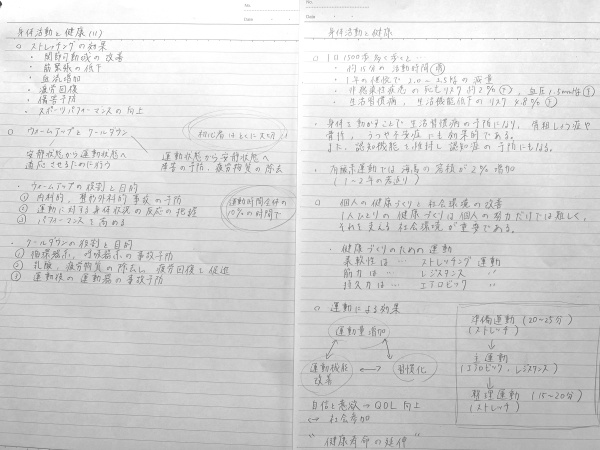 No.
Date
身体活動と健康(1)
○ ストレッチングの効果
・関節可動域の改善
・筋緊張の低下
・血流増加
・疲労回復
・傷害予防
・スポーツパフォーマンスの向上
○ ウォームアップとクールダウン
初心者ほどとくに大切!!
安静状態から運動状態へ
適応させるために行う
運動状態から安静状態へ
障害の予防、疲労物質の除去
・ウォームアップの役割と目的
① 内科的、整形外科的事故の予防
② 運動に対する身体状況の反応の把握
③ パフォーマンスを高める
運動時間全体の
10%の時間で
・クールダウンの役割と目的
① 循環器系、呼吸器系の事故予防
② 乳酸、疲労物質の除去し、疲労回復を促進
③ 運動後の運動器の事故予防
No.
Date
身体活動と健康
○ 1日1500歩多く歩くと…
・約15分の活動時間
・1年の継続で 2.0~2.5kgの減量
・非感染性疾患の死亡リスク約2%、血圧1.5mmHg
・生活習慣病、生活機能低下のリスク
・身体を動かすことで生活習慣病の予防になり、骨粗しょう症や
骨折、うつや不安症にも効果的である。
また、認知機能を維持し認知症の予防にもなる。
・有酸素運動では海馬の容積が2%増加
(1~2年の若返り)
○ 個人の健康づくりと社会環境の改善
1人ひとりの健康づくりは個人の努力だけでは難しく、
それを支える社会環境が重要である。
・健康づくりのための運動
柔軟性は… ストレッチング運動
筋力は… レジスタンス 〃
持久力は… エアロビック 〃
○ 運動による効果
運動量増加
運動機能
改善
↔
習慣化
準備運動(20~25分)
(ストレッチ)
↓
主運動
(エアロビック・レジスタンス)
↓
整理運動(15~20分)
(ストレッチ)
自信と意欲→QOL向上
↔ 社会参加
"健康寿命の延伸"